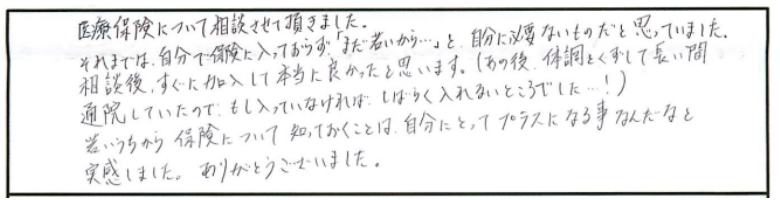 医療保険について相談させて頂きました。
それまでは、自分で保険に入っておらず、「まだ若いから…」と、自分に必要ないものだと思っていました。
相談後、すぐに加入して本当に良かったと思います。(あの後、体調をくずして長い間
通院していたので、もし入っていなければ、しばらく入れないところでした…!)
若いうちから 保険について 知っておくことは、自分にとって プラスになる事なんだなと
実感しました。ありがとうございました。